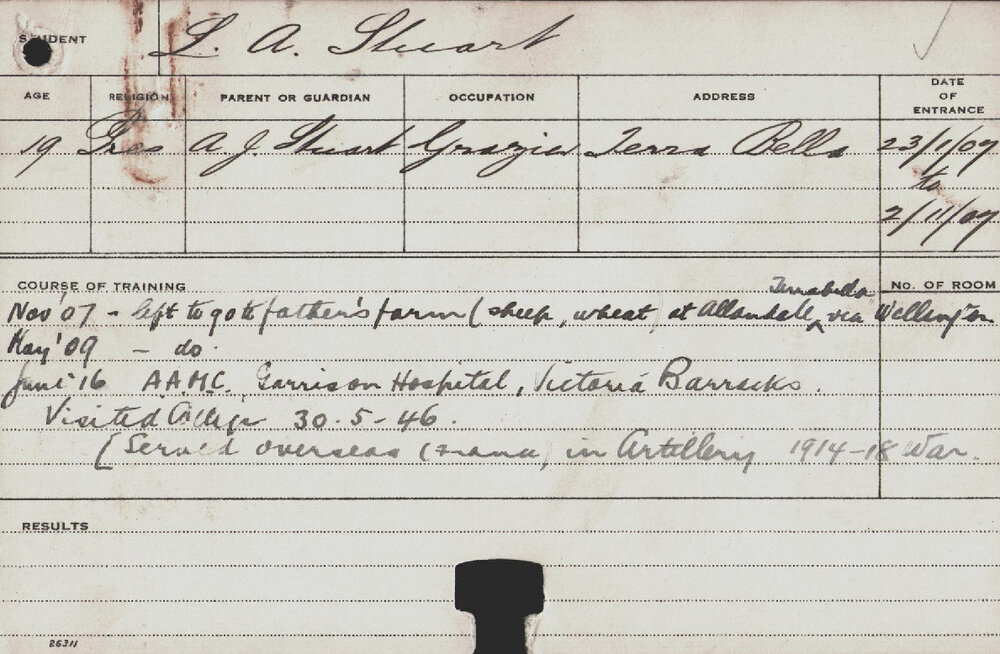 STUDENT L. A. Stuart
AGE RELIGION PARENT OR GUARDIAN OCCUPATION ADDRESS DATE OF ENTRANCE
19 Pres A. J. Stuart Grazier Terra Bella 23/1/07
to
2/11/07
COURSE OF TRAINING Terrabella No. OF ROOM
Nov '07 - left to go to father's farm (sheep, wheat) at Allandale, via Wellington
May '09 - do.
June '16 AAMC. Garrison Hospital, Victoria Barracks.
Visited College 30-5-46.
[Served overseas (France) in Artillery 1914-18 War.
RESULTS
26311